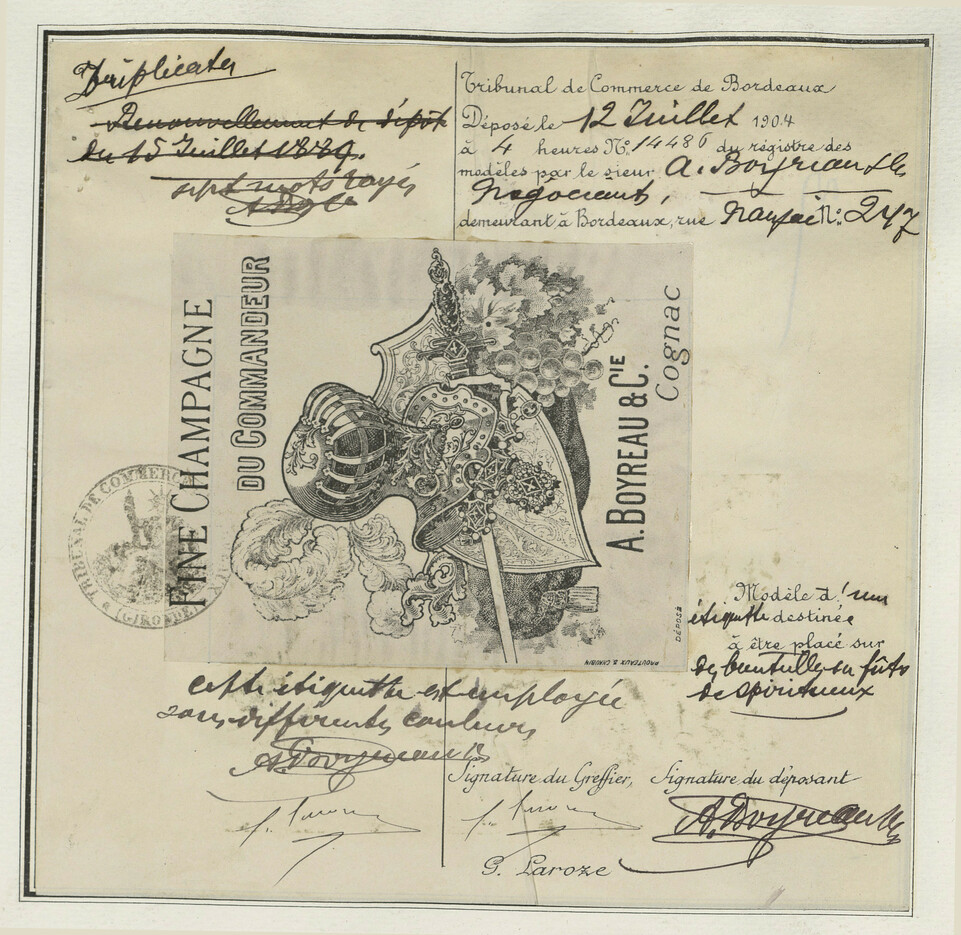 Triplicata
Renouvellement de dépôt
du 15 Juillet 1889.
sept mots rayés
Tribunal de Commerce de Bordeaux
Déposé le 12 Juillet 1904
à 4 heures No. 14486 du régistre des
modèles par le sieur A. Boyreau & Cie
Négociants,
demeurant à Bordeaux, rue No. 247
FINE CHAMPAGNE
DU COMMANDEUR
A. BOYREAU & CIE
Cognac
DÉPOSÉ
PROUTEAUX & CHAUBIN
TRIBUNAL DE COMMERCE
(GIRONDE)
Modèle d'une
étiquette destinée
à être placé sur
des bouteilles ou fûts
de spiritueux
cette étiquette est employée
sous différentes couleurs
A. Boyreau & Cie
Signature du Greffier, Signature du déposant
A. Boyreau & Cie
G. Laroze